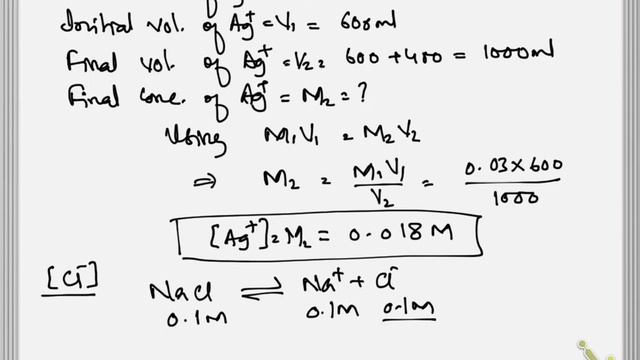 Initial vol. of Ag⁺ = V₁ = 600ml
Final vol. of Ag⁺ = V₂ = 600 + 400 = 1000ml
Final conc. of Ag⁺ = M₂ = ?
Using M₁V₁ = M₂V₂
⇒ M₂ = M₁V₁/V₂ = 0.03×600/1000
[Ag⁺] = M₂ = 0.018M
[Cl⁻] NaCl ⇌ Na⁺ + Cl⁻
0.1M 0.1M 0.1M